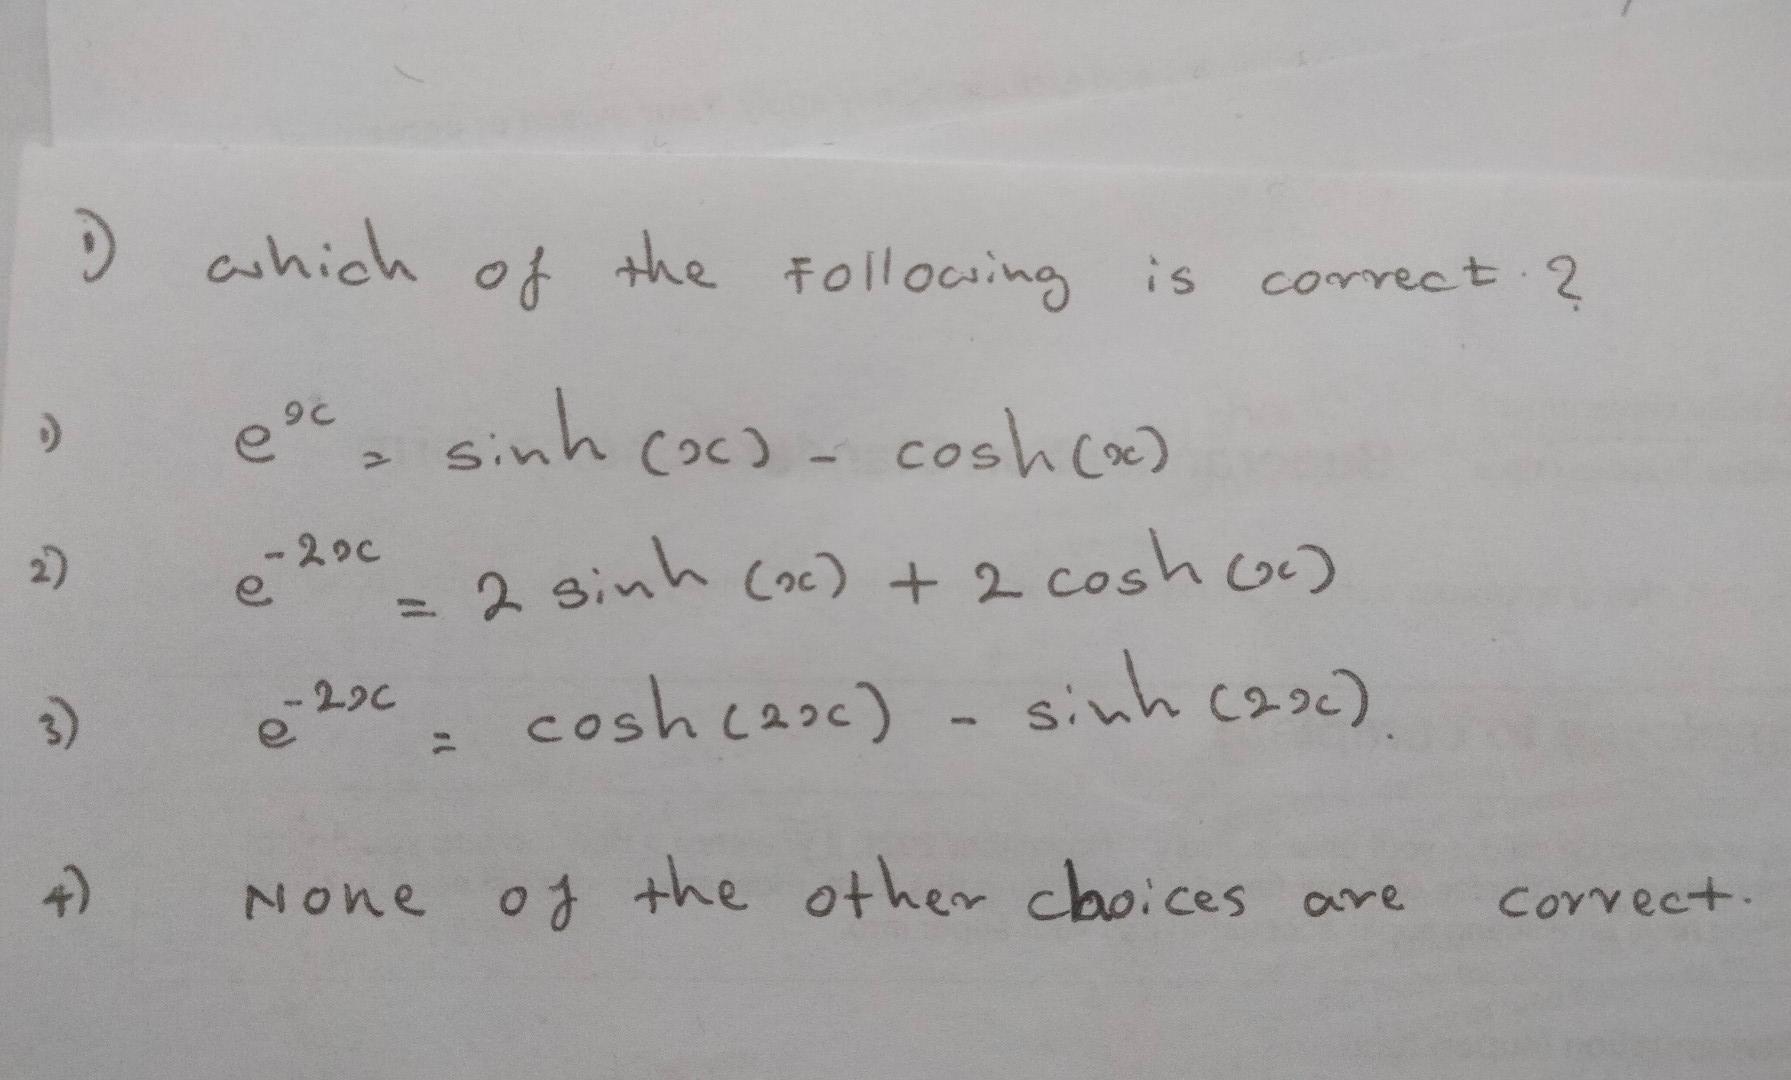 1) which of the following is correct.?
1) e^x = sinh (x) - cosh (x)
2) e^-2x = 2 sinh (x) + 2 cosh (x)
3) e^-2x = cosh (2x) - sinh (2x).
4) None of the other choices are correct.